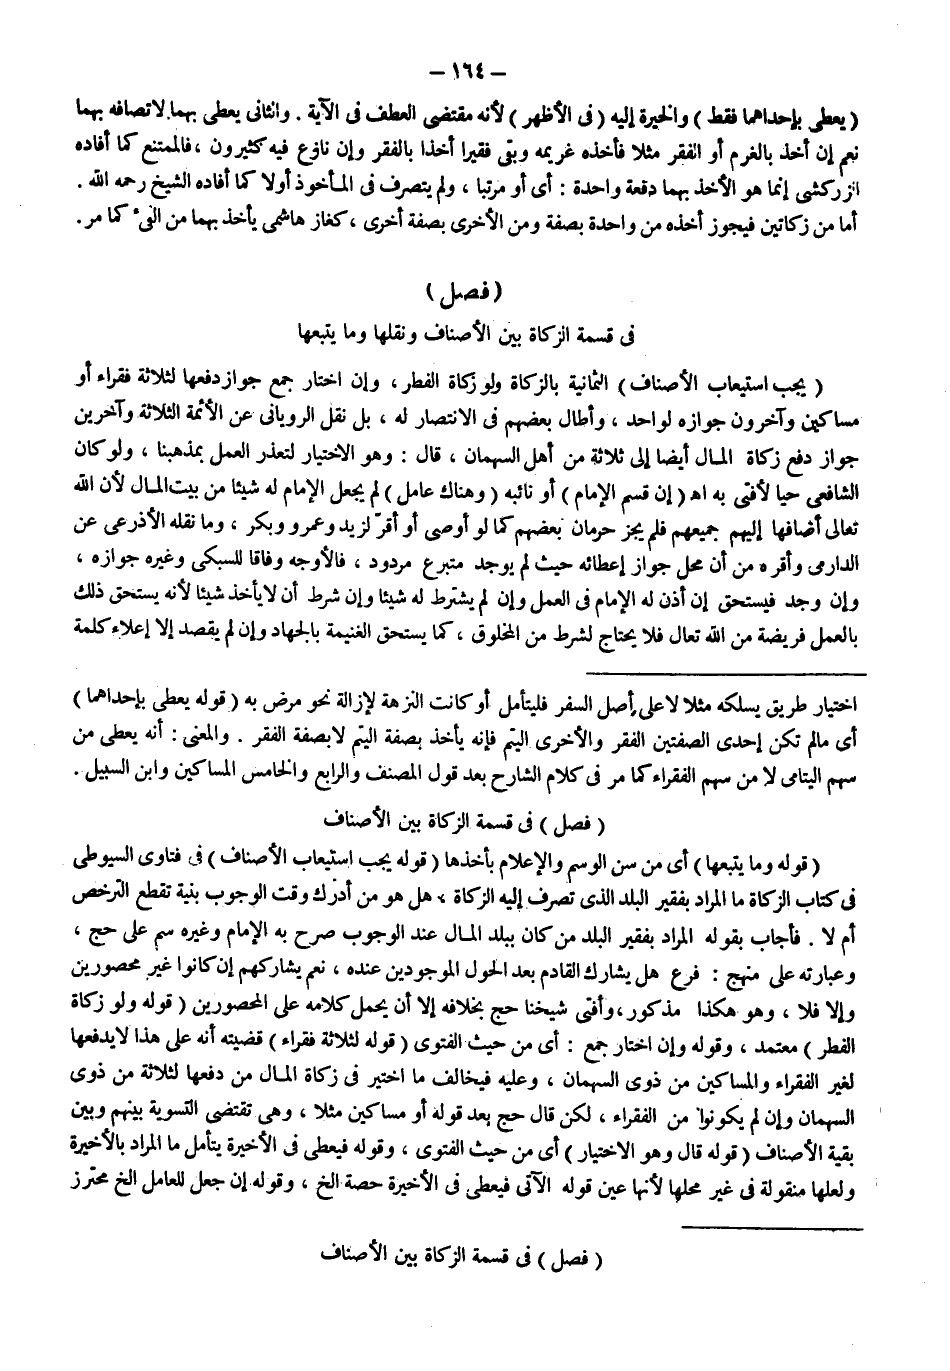 – ١٦٤ –
( يعطى بإحداهما فقط ) والخيرة إليه ( فى الأظهر ) لأنه مقتضى العطف فى الآية . والثانى يعطى بهما لاتصافه بهما
نعم إن أخذ بالغرم أو الفقر مثلا فأخذه غريمه وبقى فقيرا أخذا بالفقر وإن نازع فيه كثيرون ، فالممتنع كما أفاده
الزركشى إنما هو الأخذ بهما دفعة واحدة : أى أو مرتبا ، ولم يتصرف فى المأخوذ أولا كما أفاده الشيخ رحمه الله .
أما من زكاتين فيجوز أخذه من واحدة بصفة ومن الأخرى بصفة أخرى ، كغاز هاشمى يأخذ بهما من الفىء كما مر .
( فصل )
فى قسمة الزكاة بين الأصناف ونقلها وما يتبعها
( يجب استيعاب الأصناف ) الثمانية بالزكاة ولو زكاة الفطر ، وإن اختار جمع جواز دفعها لثلاثة فقراء أو
مساكين وآخرون جوازه لواحد ، وأطال بعضهم فى الانتصار له ، بل نقل الرويانى عن الأئمة الثلاثة وآخرين
جواز دفع زكاة المال أيضا إلى ثلاثة من أهل السهمان ، قال : وهو الاختيار لتعذر العمل بمذهبنا ، ولو كان
الشافعى حيا لأفتى به اه ( إن قسم الإمام ) أو نائبه ( وهناك عامل ) لم يجعل الإمام له شيئا من بيت المال لأن الله
تعالى أضافها إليهم جميعهم فلم يجز حرمان بعضهم كما لو أوصى أو أقرّ لزيد وعمرو وبكر ، وما نقله الأذرعى عن
الدارمى وأقره من أن محل جواز إعطائه حيث لم يوجد متبرع مردود ، فالأوجه وفاقا للسبكى وغيره جوازه ،
وإن وجد فيستحق إن أذن له الإمام فى العمل وإن لم يشترط له شيئا وإن شرط أن لايأخذ شيئا لأنه يستحق ذلك
بالعمل فريضة من الله تعال فلا يحتاج لشرط من المخلوق ، كما يستحق الغنيمة بالجهاد وإن لم يقصد إلا إعلاء كلمة
اختيار طريق يسلكه مثلا لاعلى أصل السفر فليتأمل أو كانت النزهة لإزالة نحو مرض به ( قوله يعطى بإحداهما )
أى مالم تكن إحدى الصفتين الفقر والأخرى اليتم فإنه يأخذ بصفة اليتم لابصفة الفقر . والمعنى : أنه يعطى من
سهم اليتامى لا من سهم الفقراء كما مر فى كلام الشارح بعد قول المصنف والرابع والخامس المساكين وابن السبيل .
( فصل ) فى قسمة الزكاة بين الأصناف
( قوله وما يتبعها ) أى من سن الوسم والإعلام بأخذها ( قوله يجب استيعاب الأصناف ) فى فتاوى السيوطى
فى كتاب الزكاة ما المراد بفقير البلد الذى تصرف إليه الزكاة ، هل هو من أدرك وقت الوجوب بنية تقطع الترخص
أم لا . فأجاب بقوله المراد بفقير البلد من كان ببلد المال عند الوجوب صرح به الإمام وغيره سم على حج ،
وعبارته على منهج : فرع هل يشارك القادم بعد الحول الموجودين عنده ، نعم يشاركهم إن كانوا غير محصورين
وإلا فلا ، وهو هكذا مذكور ، وأفتى شيخنا حج بخلافه إلا أن يحمل كلامه على المحصورين ( قوله ولو زكاة
الفطر ) معتمد ، وقوله وإن اختار جمع : أى من حيث الفتوى ( قوله لثلاثة فقراء ) قضيته أنه على هذا لايدفعها
لغير الفقراء والمساكين من ذوى السهمان ، وعليه فيخالف ما اختير فى زكاة المال من دفعها لثلاثة من ذوى
السهمان وإن لم يكونوا من الفقراء ، لكن قال حج بعد قوله أو مساكين مثلا ، وهى تقتضى التسوية بينهم وبين
بقية الأصناف ( قوله قال وهو الاختيار ) أى من حيث الفتوى ، وقوله فيعطى فى الأخيرة يتأمل ما المراد بالأخيرة
ولعلها منقولة فى غير محلها لأنها عين قوله الآتى فيعطى فى الأخيرة حصة الخ ، وقوله إن جعل للعامل الخ محترز
( فصل ) فى قسمة الزكاة بين الأصناف